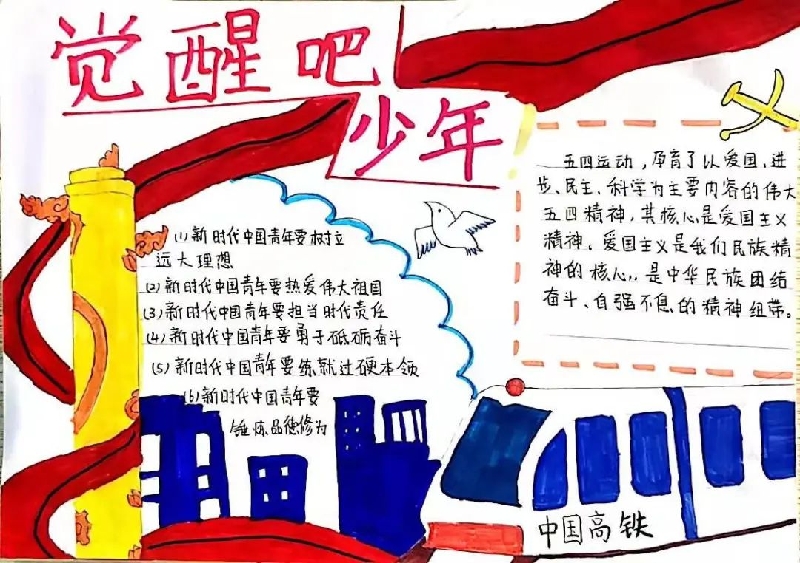 觉醒吧
少年
(1)新时代中国青年要树立
远大理想
(2)新时代中国青年要热爱伟大祖国
(3)新时代中国青年要担当时代责任
(4)新时代中国青年要勇于砥砺奋斗
(5)新时代中国青年要练就过硬本领
(6)新时代中国青年要
锤炼品德修为
五四运动，孕育了以爱国、进
步、民主、科学为主要内容的伟大
五四精神，其核心是爱国主义
精神。爱国主义是我们民族精
神的核心，是中华民族团结
奋斗、自强不息的精神纽带。
中国高铁